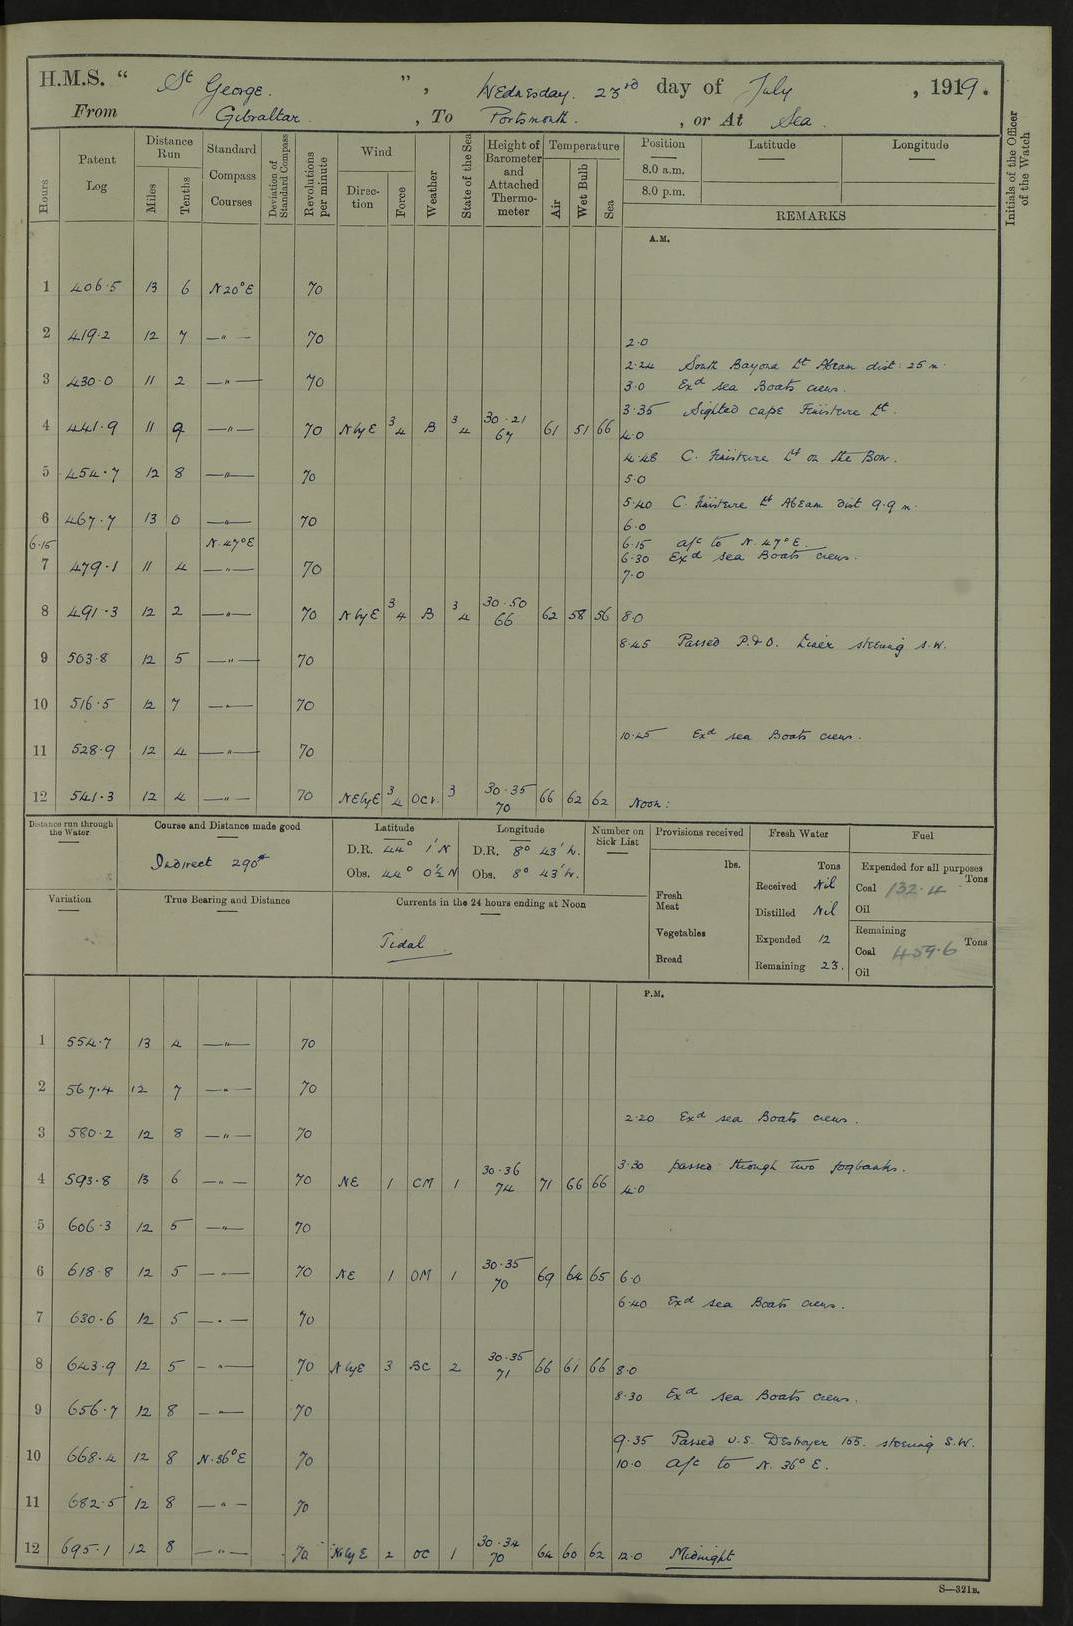 H.M.S. “ St George. ”, Wednesday. 23rd day of July, 1919.
From Gibraltar, To Portsmouth., or At Sea.
Hours
Patent Log
Distance Run
Miles
Tenths
Standard Compass Courses
Deviation of Standard Compass
Revolutions per minute
Wind
Direction
Force
Weather
State of the Sea
Height of Barometer and Attached Thermometer
Temperature
Air
Wet Bulb
Sea
Position
8.0 a.m.
8.0 p.m.
Latitude
Longitude
REMARKS
Initials of the Officer of the Watch
A.M.
1 406.5 13 6 N20°E 70
2 419.2 12 7 —„— 70
2.0
2.24 South Bayona Lt Abeam dist. 25 m.
3 430.0 11 2 —„— 70
3.0 Exd sea Boats crews.
3.35 Sighted cape Finisterre Lt.
4 441.9 11 9 —„— 70 NbyE 3 4 B 3 4 30.21 67 61 51 66
4.0
4.48 C. Finisterre Lt on the Bow.
5 454.7 12 8 —„— 70
5.0
5.40 C. Finisterre Lt Abeam dist 9.9 m.
6 467.7 13 0 —„— 70
6.0
6.15 N.47°E
6.15 a/c to N.47°E.
6.30 Exd sea Boats crews.
7 479.1 11 4 —„— 70
7.0
8 491.3 12 2 —„— 70 NbyE 3 4 B 3 4 30.50 66 62 58 56 8.0
8.45 Passed P.&O. Liner steering S.W.
9 503.8 12 5 —„— 70
10 516.5 12 7 —„— 70
10.45 Exd sea Boats crews.
11 528.9 12 4 —„— 70
12 541.3 12 4 —„— 70 NEbyE 3 4 3 30.35 70 66 62 62 Noon:
Distance run through the Water
Course and Distance made good
Indirect 290
Latitude
D.R. 44° 1' N
Obs. 44° 0½ N
Longitude
D.R. 8° 43' W.
Obs. 8° 43' W.
Number on Sick List
Provisions received
lbs.
Fresh Meat
Vegetables
Bread
Fresh Water
Tons
Received Nil
Distilled Nil
Expended 12
Remaining 23.
Fuel
Expended for all purposes
Tons
Coal 132.4
Oil
Remaining
Tons
Coal 459.6
Oil
Variation
True Bearing and Distance
Currents in the 24 hours ending at Noon
Tidal
P.M.
1 554.7 13 4 —„— 70
2 567.4 12 7 —„— 70
2.20 Exd sea Boats crews.
3 580.2 12 8 —„— 70
3.30 passed through two fogbanks.
4 593.8 13 6 —„— 70 NE 1 CM 1 30.36 74 71 66 66 4.0
5 606.3 12 5 —„— 70
6 618.8 12 5 —„— 70 NE 1 OM 1 30.35 70 69 64 65 6.0
6.40 Exd sea Boats crews.
7 630.6 12 5 —„— 70
8 643.9 12 5 —„— 70 NbyE 3 BC 2 30.35 71 66 61 66 8.0
8.30 Exd sea Boats crews.
9 656.7 12 8 —„— 70
9.35 Passed U.S. Destroyer 155. steering S.W.
10 668.4 12 8 N.36°E 70
10.0 a/c to N.36°E.
11 682.5 12 8 —„— 70
12 695.1 12 8 —„— 70 NbyE 2 OC 1 30.34 70 64 60 62 12.0 Midnight
S—321B.